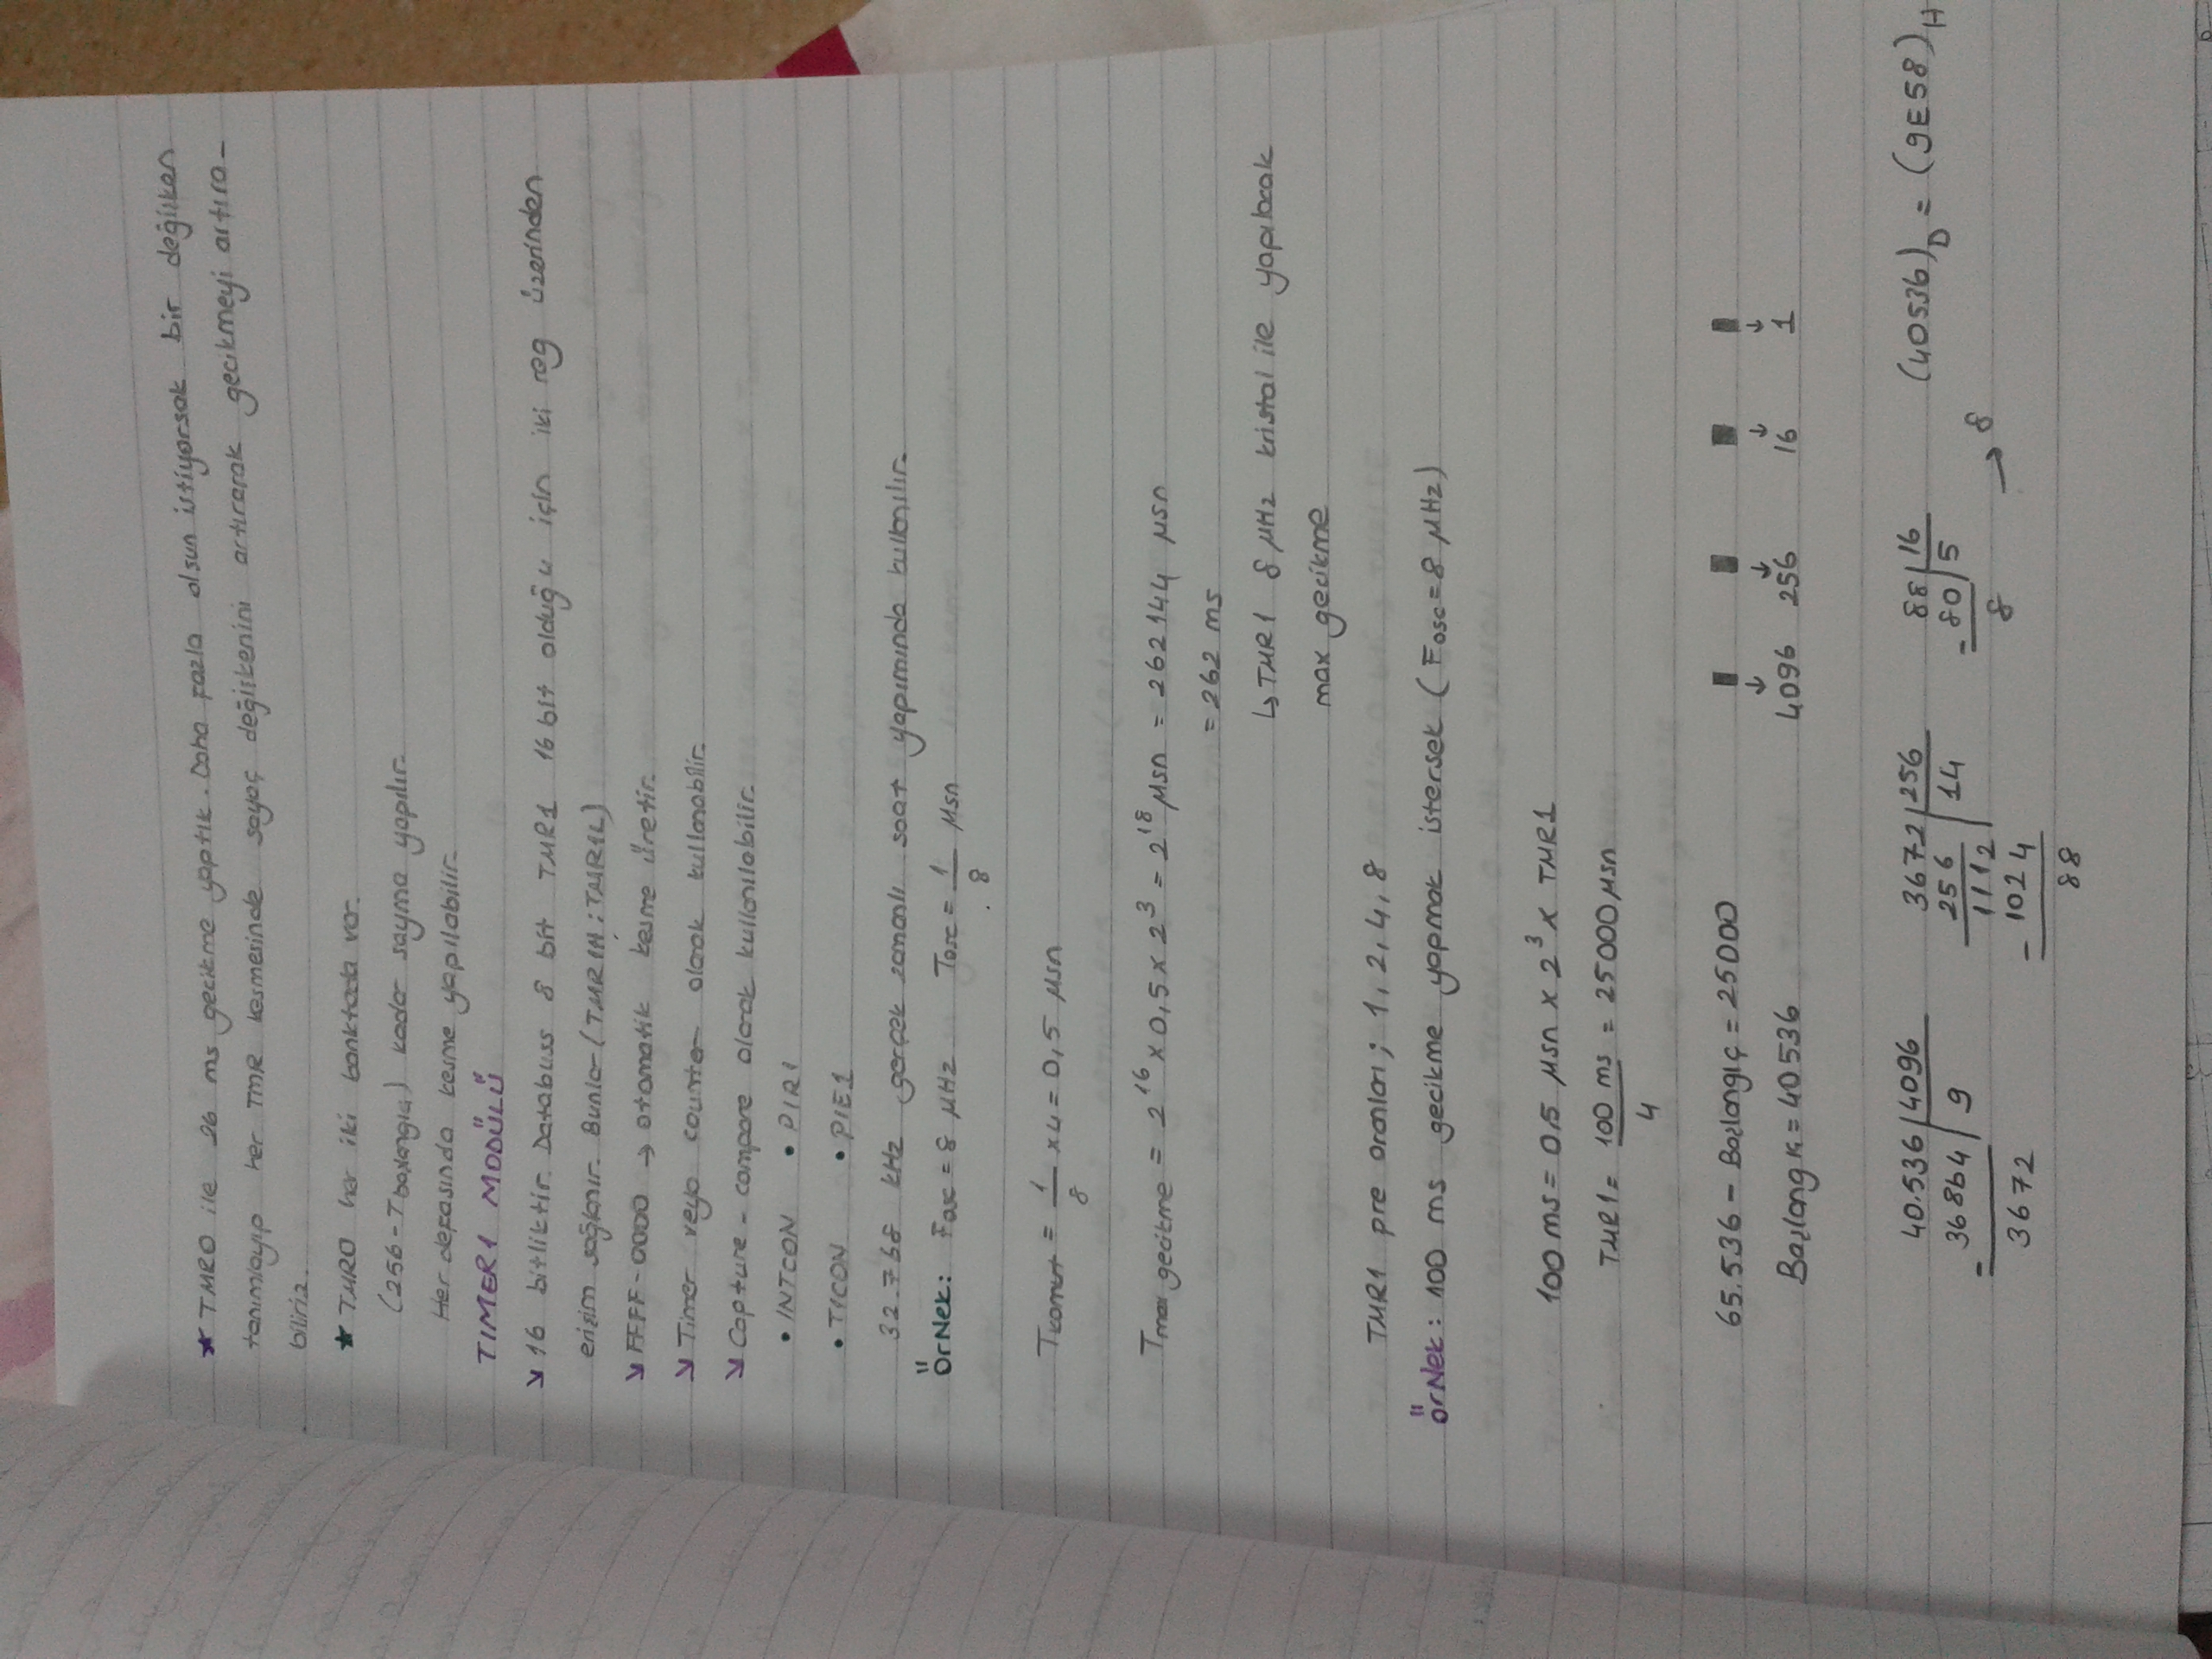 ★ TMR0 ile 26 ms gecikme yaptık. Daha fazla olsun istiyorsak bir değişken
tanımlayıp her TMR kesmesinde sayaç değişkenini artırarak gecikmeyi artıra-
biliriz.
★ TMR0 her iki banktada var.
(256 - Tbaşlangıç) kadar sayma yapılır.
Her defasında kesme yapılabilir.
TIMER1 MODÜLÜ
↘ 16 bitliktir. Databuss 8 bit TMR1 16 bit olduğu için iki reg üzerinden
erişim sağlanır. Bunlar (TMR1H : TMR1L)
↘ FFFF - 0000 → otomatik kesme üretir.
↘ Timer veya counter olarak kullanabilir.
↘ Capture - compare olarak kullanılabilir.
• INTCON • PIR1
• T1CON • PIE1
32.768 kHz gerçek zamanlı saat yapımında kullanılır.
ÖrNek: Fosc = 8 MHz Tosc = 1/8 Msn
Tkomut = 1/8 x 4 = 0,5 Msn
Tmax gecikme = 2^16 x 0,5 x 2^3 = 2^18 Msn = 262144 Msn
= 262 ms
↳ TMR1 8 MHz kristal ile yapılacak
max gecikme
TMR1 pre oranları ; 1, 2, 4, 8
ÖrNek: 100 ms gecikme yapmak istersek ( Fosc = 8 MHz )
100 ms = 0,5 Msn x 2^3 x TMR1
TMR1 = 100 ms / 4 = 25000 Msn
65.536 - Başlangıç = 25000
↓ ↓ ↓ ↓
Başlangıç = 40536 4096 256 16 1
40.536 | 4096 3672 | 256 88 | 16 (40536)D = (9E58)H
- 36864 | 9 256 | 14 - 80 | 5
3672 1112 8 → 8
- 1024
88